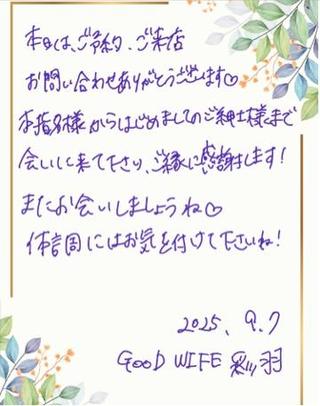 本日は、ご予約、ご来店
お問い合わせありがとうございます♡
本指名様からはじめましてのご紳士様まで
会いに来て下さり、ご縁に感謝します!
またお会いしましょうね♡
体調にはお気を付けて下さいね!
2025. 9.7
GOOD WIFE 彩羽